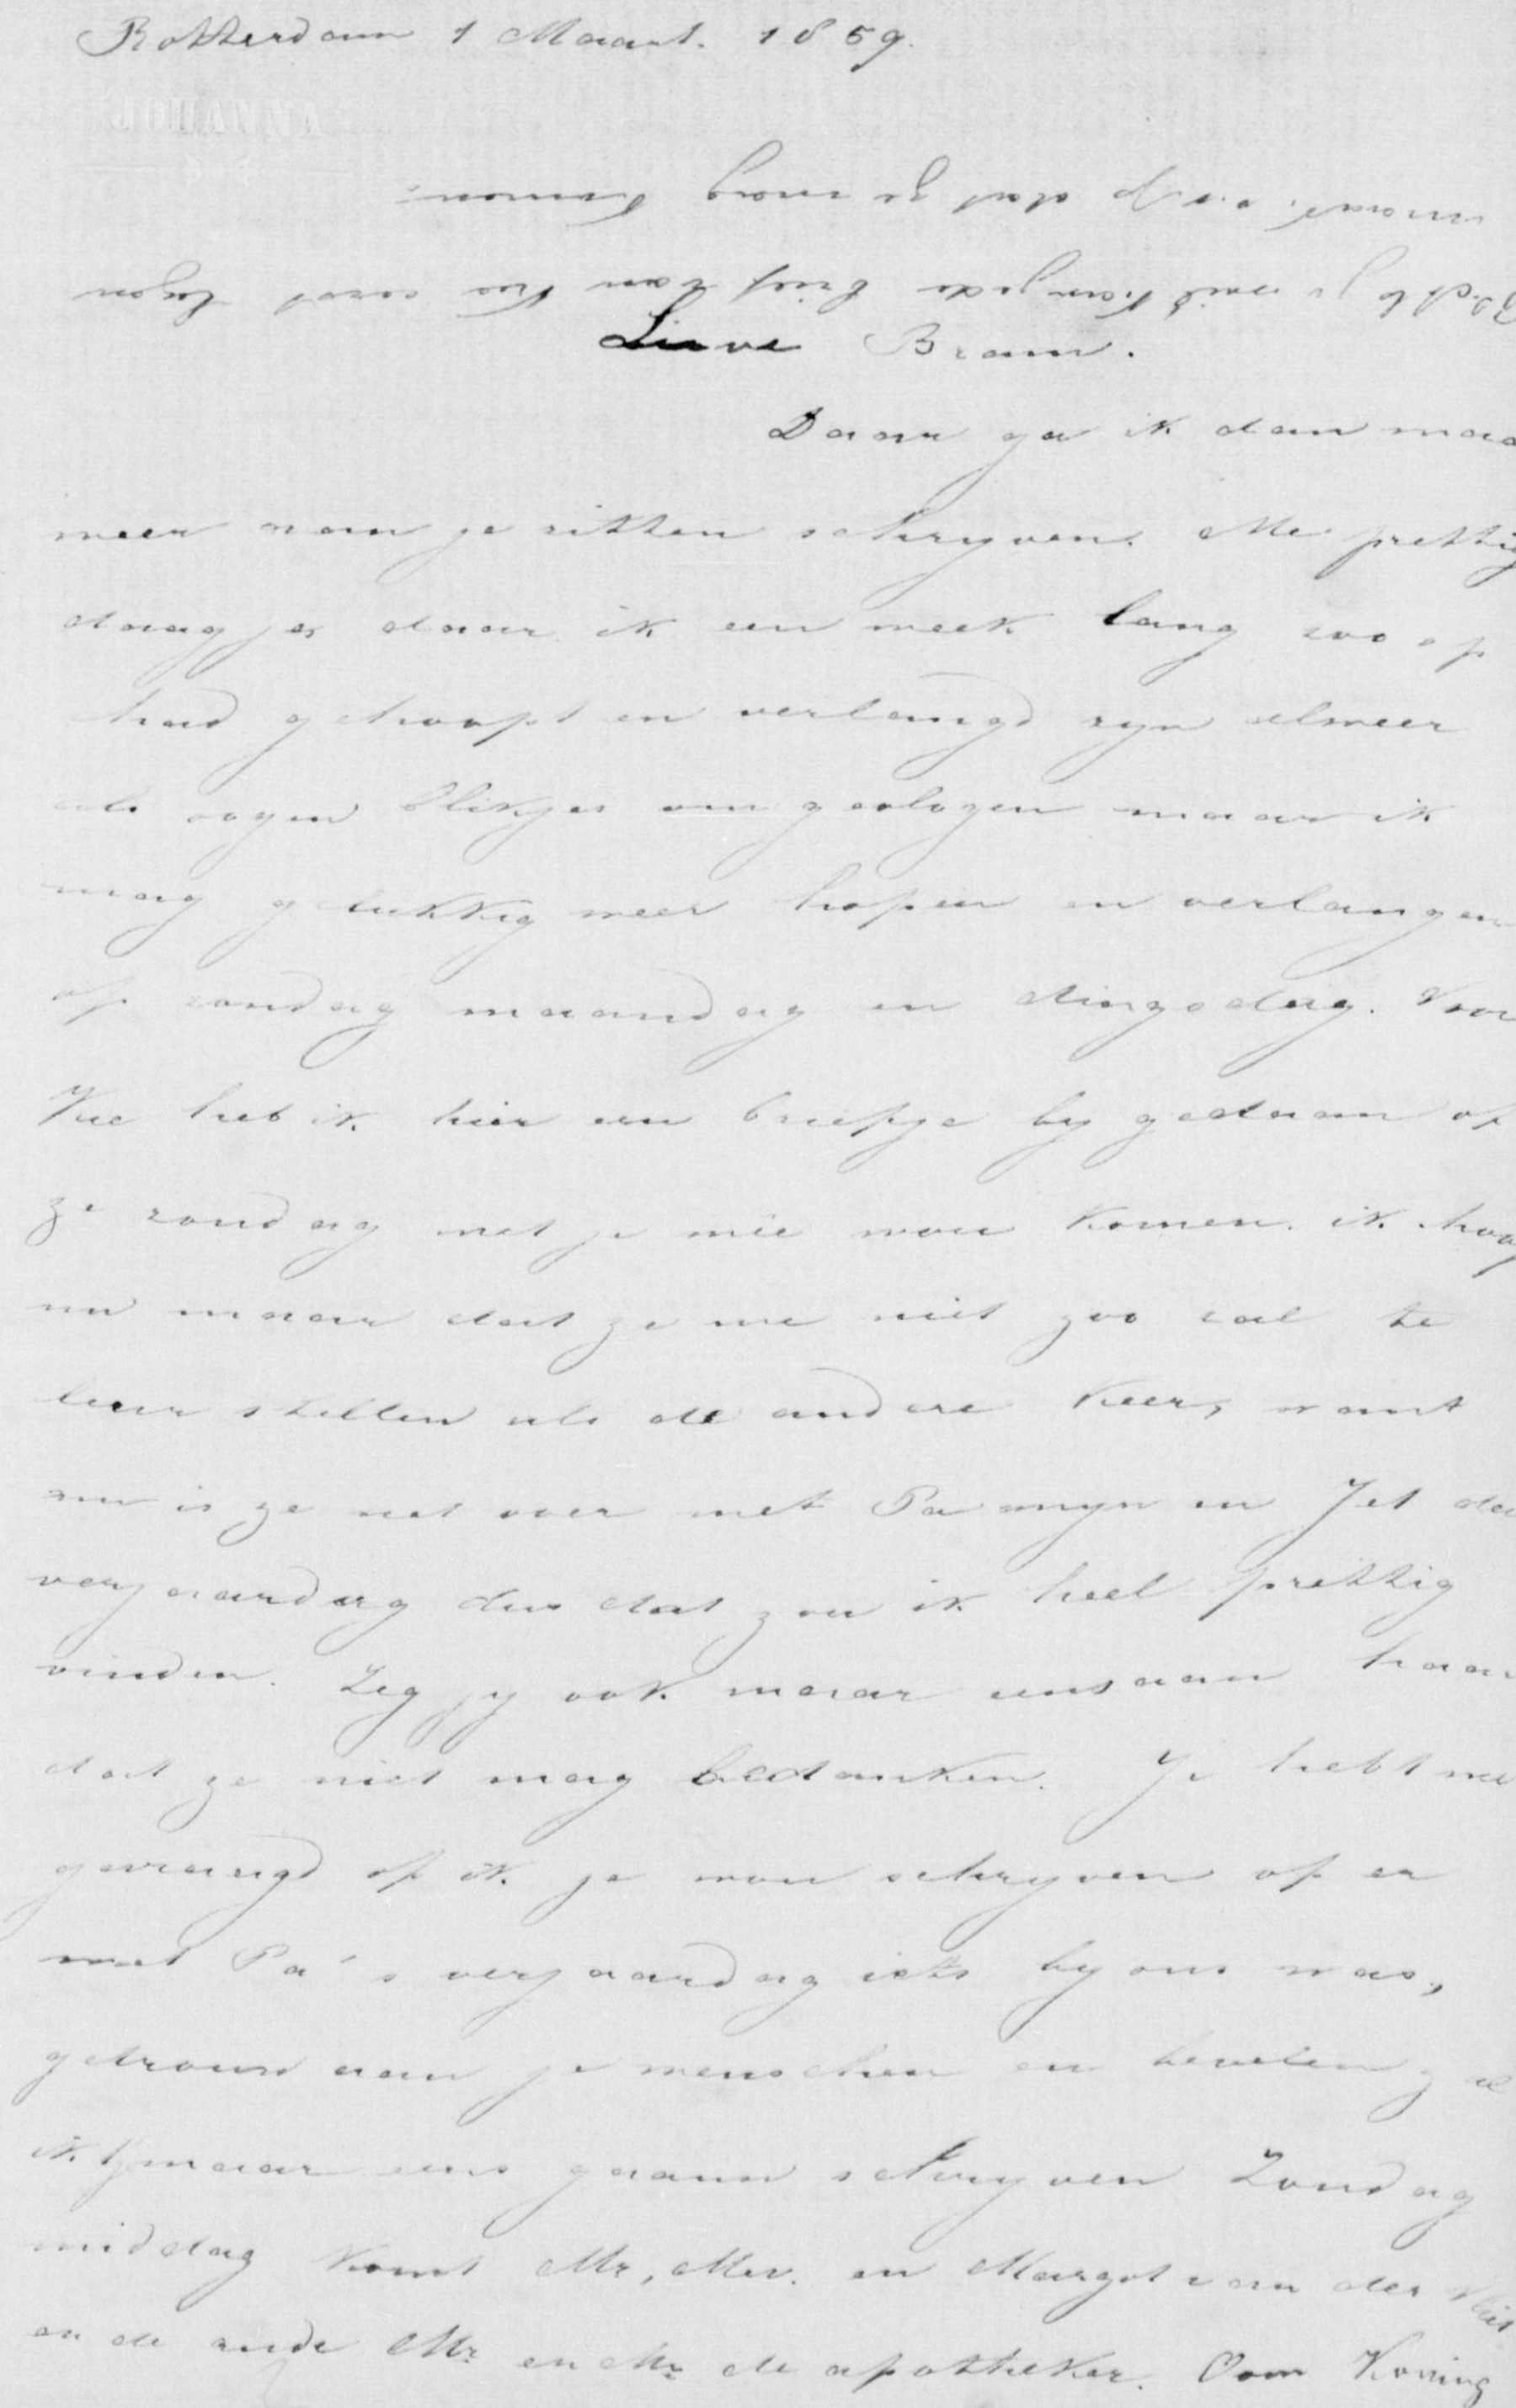 Rotterdam 1 Maart. 1859.
maar, dat ze mag komen.
Lieve Bram.
Daar ga ik dan maa
weer aan je zitten schryven. Me prettig
daagjes daar ik een week lang zoo op
had gehoopt en verlangd zyn alweer
als oogen blikjes om gevlogen maar ik
mag gelukkig weer hopen en verlangen
op zondag maandag en dingsdag. Voor
heb ik hier een briefje by gedaan of
ze zondag met je mee wou komen. ik hoop
nu maar dat ze me niet zoo zal te
leur stellen als de andere keer, want
nu is ze net over met Pa myn en Jet der
verjaardag dus dat zou ik heel prettig
vinden. Zeg jy ook maar eens aan haar
dat ze niet mag bedanken. Je hebt me
gevraagd of ik je wou schryven of er
met Pa's verjaardag iets by ons was,
getrouw aan je wenschen en bevelen zal
ik maar eens gaan schryven Zondag
middag komt Mr, Mev. en Margot van der
en de oude Mr en Mr de apotheker. Oom Koning